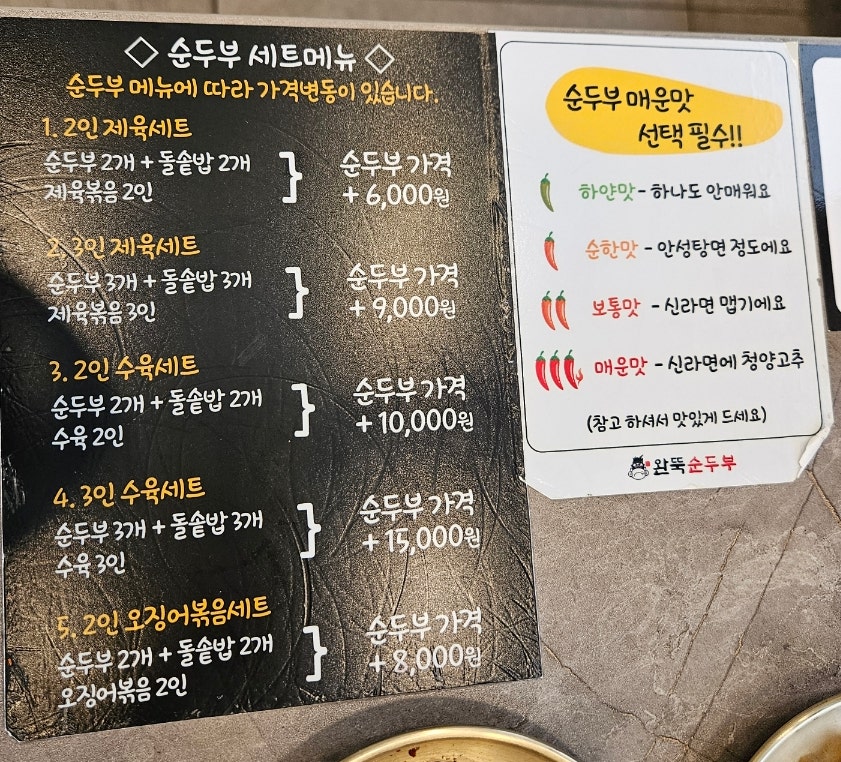 ◇ 순두부 세트메뉴 ◇
순두부 메뉴에 따라 가격변동이 있습니다.
1. 2인 제육세트
순두부 2개 + 돌솥밥 2개
제육볶음 2인
순두부 가격
+ 6,000원
2. 3인 제육세트
순두부 3개 + 돌솥밥 3개
제육볶음 3인
순두부 가격
+ 9,000원
3. 2인 수육세트
순두부 2개 + 돌솥밥 2개
수육 2인
순두부 가격
+ 10,000원
4. 3인 수육세트
순두부 3개 + 돌솥밥 3개
수육 3인
순두부 가격
+ 15,000원
5. 2인 오징어볶음세트
순두부 2개 + 돌솥밥 2개
오징어볶음 2인
순두부 가격
+ 8,000원
순두부 매운맛
선택 필수!!
하얀맛 - 하나도 안매워요
순한맛 - 안성탕면 정도에요
보통맛 - 신라면 맵기에요
매운맛 - 신라면에 청양고추
(참고 하셔서 맛있게 드세요)
완뚝순두부